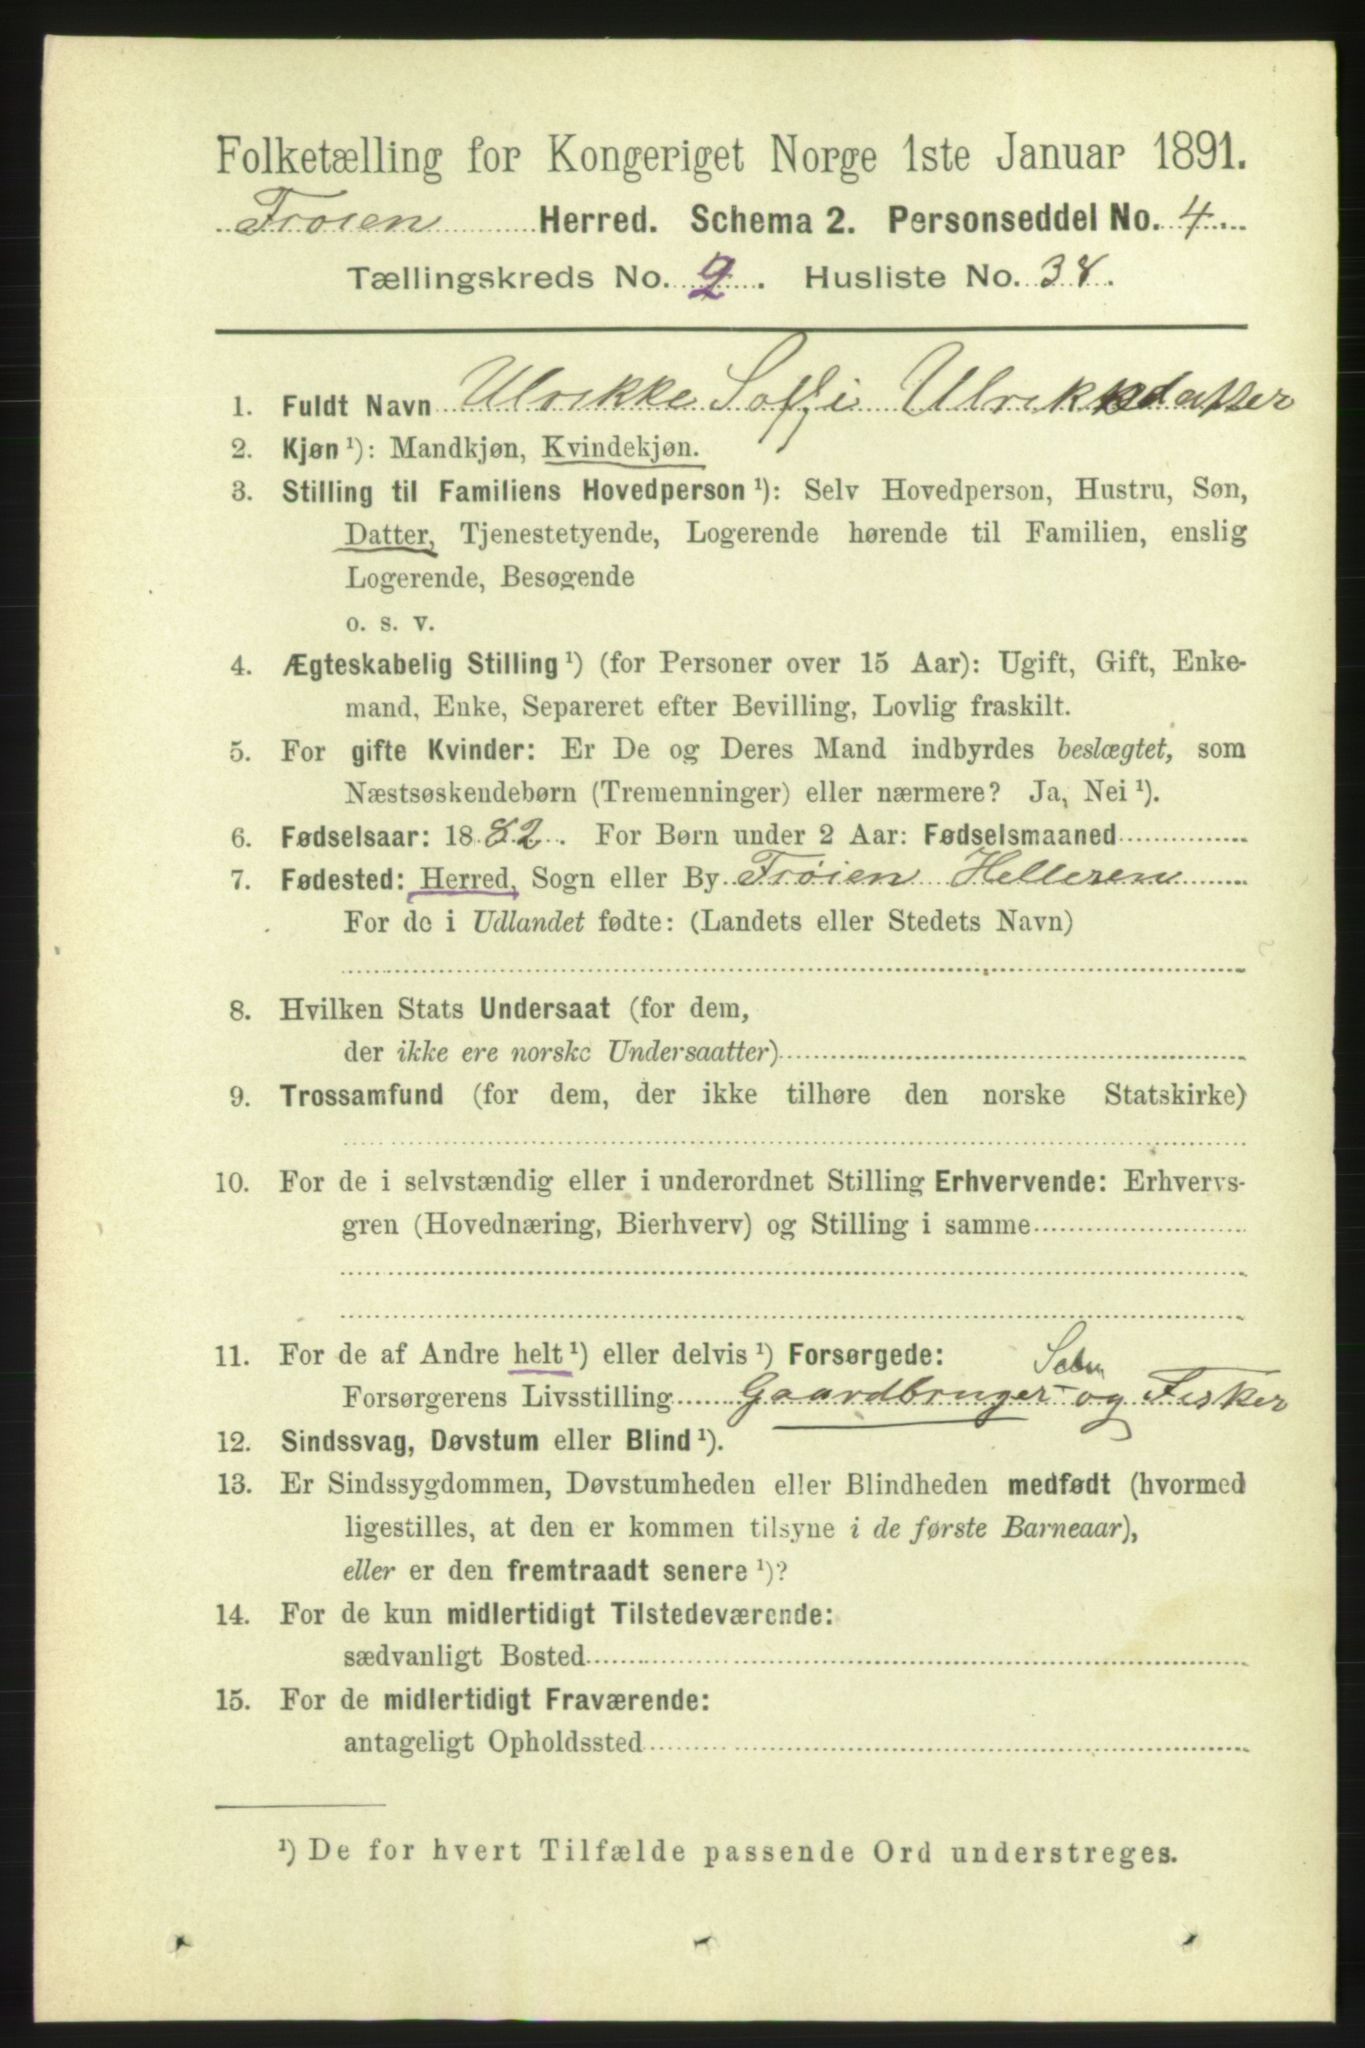 Folketælling for Kongeriget Norge 1ste Januar 1891.
Frøien Herred. Schema 2. Personseddel No. 4
Tællingskreds No. 2. Husliste No. 38.
1. Fuldt Navn Ulrikke Soffi Ulriksdatter
2. Kjøn ¹): Mandkjøn, Kvindekjøn.
3. Stilling til Familiens Hovedperson ¹): Selv Hovedperson, Hustru, Søn,
Datter, Tjenestetyende, Logerende hørende til Familien, enslig
Logerende, Besøgende
o. s. v.
4. Ægteskabelig Stilling ¹) (for Personer over 15 Aar): Ugift, Gift, Enke-
mand, Enke, Separeret efter Bevilling, Lovlig fraskilt.
5. For gifte Kvinder: Er De og Deres Mand indbyrdes beslægtet, som
Næstsøskendebørn (Tremenninger) eller nærmere? Ja, Nei ¹).
6. Fødselsaar: 1882. For Børn under 2 Aar: Fødselsmaaned
7. Fødested: Herred, Sogn eller By Frøien Helleren
For de i Udlandet fødte: (Landets eller Stedets Navn)
8. Hvilken Stats Undersaat (for dem,
der ikke ere norske Undersaatter)
9. Trossamfund (for dem, der ikke tilhøre den norske Statskirke)
10. For de i selvstændig eller i underordnet Stilling Erhvervende: Erhvervs-
gren (Hovednæring, Bierhverv) og Stilling i samme
11. For de af Andre helt ¹) eller delvis ¹) Forsørgede:
Forsørgerens Livsstilling Gaardbruger og Fisker
12. Sindssvag, Døvstum eller Blind ¹).
13. Er Sindssygdommen, Døvstumheden eller Blindheden medfødt (hvormed
ligestilles, at den er kommen tilsyne i de første Barneaar),
eller er den fremtraadt senere ¹)?
14. For de kun midlertidigt Tilstedeværende:
sædvanligt Bosted
15. For de midlertidigt Fraværende:
antageligt Opholdssted
¹) De for hvert Tilfælde passende Ord understreges.